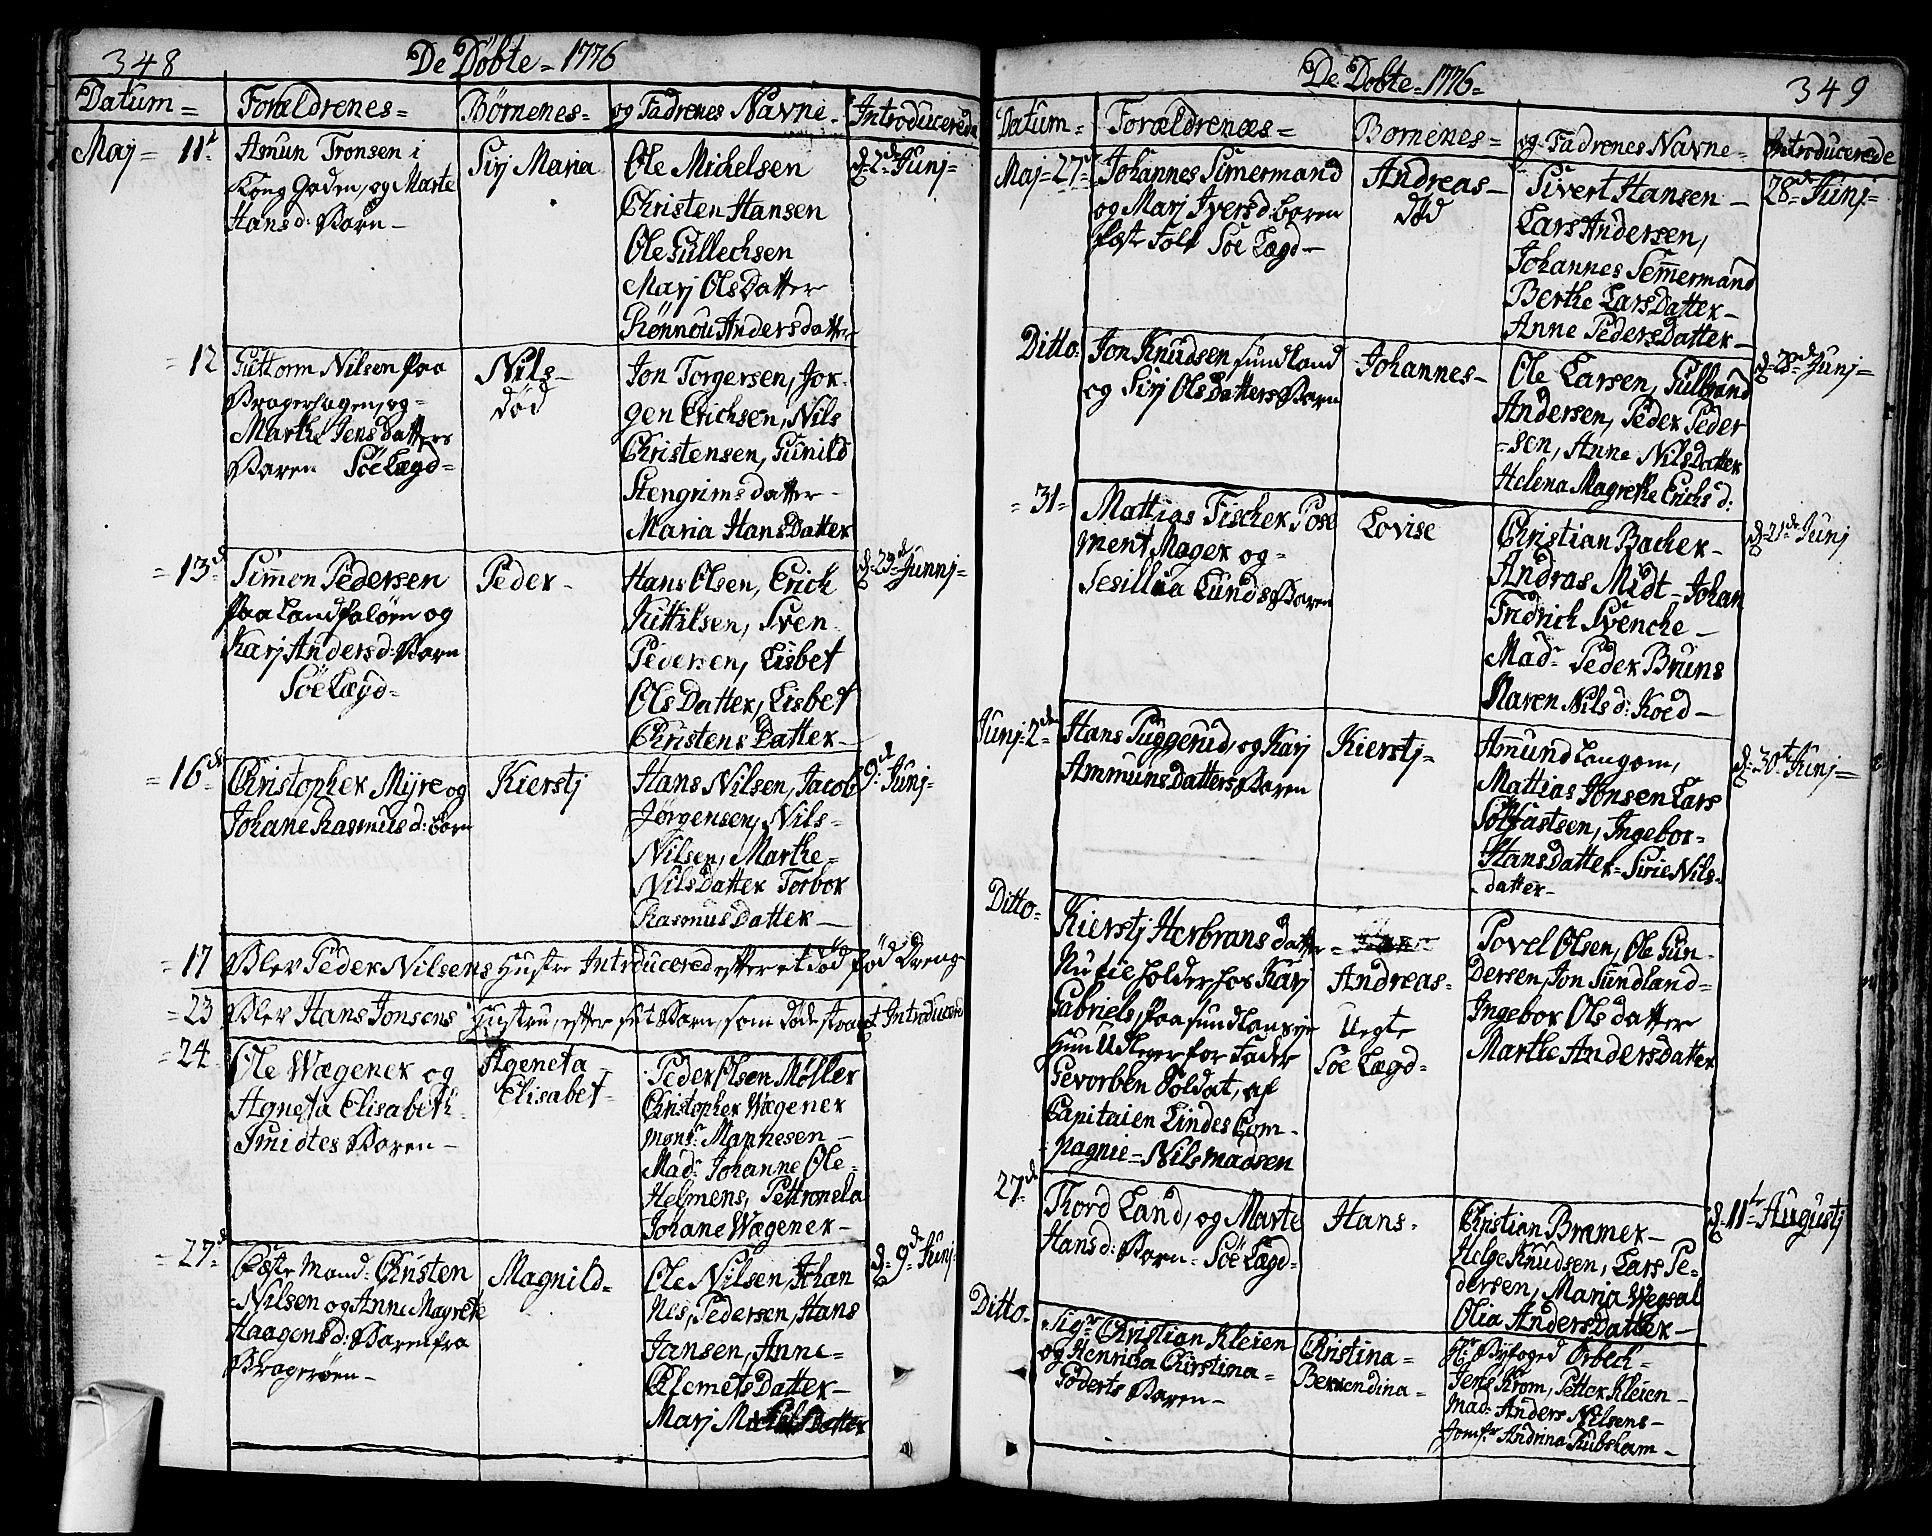 348
De Döbte = 1776
Datum = Forældrenes = Börnenes = og Fadrenes Navne - Introducerede
Maj = 11t
Amun Tronsen i
Kong Gaden, og Marte
Hansd: Barn -
Sirj Maria
Ole Michelsen
Christen Hansen
Ole Gullechsen
Marj OlsDatter
Rønnou Andersdatter
d: 2de Junj =
= 12
Guttorm Nilsen paa
Bragerhagen, og =
Marthe JensDatters
Baren Söe Lægd =
Nils -
död
Jon Torgersen, Jör-
gen Erichsen, Nils
Christensen, Gunild
Stengrimsdatter -
Maria HansDatter
= 13d
Simen Pedersen
paa Landfalöen og
Karj Andersd: Barn
Söe Lægd =
Peder -
Hans Olsen, Erich
Kittilsen, Sven
Pedersen, Lisbet
OlsDatter, Lisbet
ChristensDatter -
d: 23d Junnj =
= 16de
Christopher Myre og
Johane Rasmusd: born
Kierstj
Hans Nilsen, Jacob
Jørgensen, Nils =
Nilsen, Marthe =
NilsDatter Torbor
RasmusDatter -
9de Junj =
= 17 Blev Peder Nilsens Hustru Introduceret efter et död föd Dreng
= 23 Blev Hans Jonsens Hustru, efter sit Barn, som döde strax Introducered
= 24
Ole Wægener og
Agneta Elisabeth
Smidtes Baren -
Ageneta
Elisabet -
Peder Olsen Møller
Christopher Wægener
Monsr. Mannesen -
Mad: Johanne Ole =
Helmens, Pettronela
Johane Wægener -
= 27de
Christen
Nilsen og Anne Magrete
Haagensd: Baren fra
Bragerøen -
Magnild =
Ole Nilsen, Johan
nes, Pedersen, Hans
Jansen, Anne =
ClemetsDatter -
Marj
d: 9de Junj =
De Döbte = 1776 =
349
Datum = Forældrenæs = Bornenes = og Fadrenes Navne = Introducerede
Maj = 27de
Johannes Simermand
og Marj Iversd baren
Söe Lægd -
Andreas -
död
Sivert Hansen -
Lars Andersen,
Johannes Semermand
Berthe LarsDatter -
Anne PedersDatter -
28de Junj =
Ditto:
Jon Knudsen sundland
og Sirj OlsDatters Barn
Johannes -
Ole Larsen, Gulbrand
Andersen, Peder Peder
=sen, Anne NilsDatter
Helena Magrethe Erichsd:
d: 28de Junj =
= 31 =
Mattias Fischer Pose
ment Mager og =
Sesillia Lunds Baren
Lovise
Christian Bacher -
Andras Midt = Johan
Fridrich Svencke -
Mad: Peder Bruns
Maren Nilsd: Koed -
d: 21de Junj
Junj = 2de
Hans Tuggerud, og Karj
AmmunsDatters Baren
Kierstj =
Amund Langom,
Mattias Jonsen Lars
Solfastsen, Ingebor =
Hansdatter = Sirie Nils =
datter -
d: 30t Junj =
Ditto =
Kierstj Herbransdatter =
Nu tilholder hos Karj
Gabriels, paa sundlansøe
hun Udleger for Fader
Gevorben Soldat, af
Capitaien Lindes Com =
pagnie = Nils Madsen
Andreas =
Uegte
Söe Lægd =
Povel Olsen, Ole Gun =
dersen, Jon Sundland =
Ingebor Olsdatter
Marthe Andersdatter
27de
Thord Land, og Marte
Hansd: Barn = Söe Lægd =
Hans =
Christian Bræmer -
Helge Knudsen, Lars Pe =
dersen, Maria Wegsal
Olia AndersDatter -
d: 11te Augustj
Ditto =
Sigr Christian Kleien
og Henricha Chrstina =
Göderts Baren -
Christina =
Bernendina =
Hr: Byfoged Orbech -
Jens Krom, Petter Kleien -
Mad: Anders Nilsens -
Jomfr Andrina Kubsham -